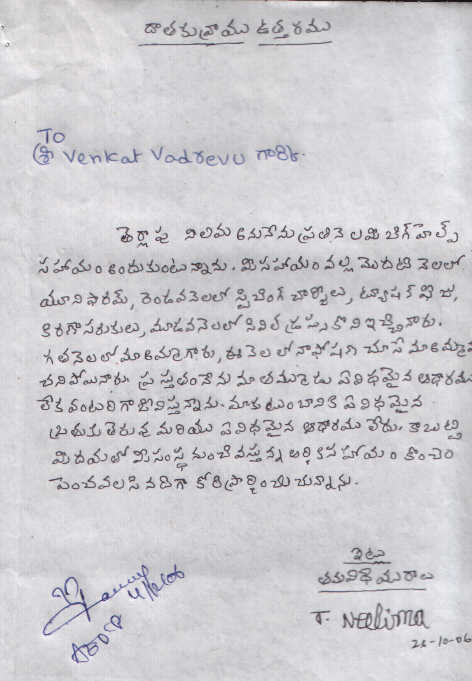 దాతకువ్రాయు ఉత్తరము
TO
శ్రీ Venkat Vadrevu గారికి.
తెర్లాపు నిలిమ అనునేను ప్రతినెల మీ బిగ్‌హెల్ప్
సహాయం అందుకుంటున్నాను. మీ సహాయం వల్ల మొదటి నెలలో
యూనిఫారమ్, రెండవనెలలో స్టిచింగ్ చార్జీలు, ట్యూషన్ ఫీజు,
కిరాణాసరుకులు, మూడవనెలలో సివిల్ డ్రస్సు కొని ఇచ్చినారు.
గతనెలలో మా అమ్మగారు, ఈ నెల లో నా పోషణ చూసే మా అమ్మమ్మ
చనిపోయినారు. ప్రస్తుతం నేను మా తమ్ముడు ఏవిధమైన ఆధారము
లేక వంటరిగా జీవిస్తున్నాను. మాకుటుంబానికి ఏ విధమైన
బ్రతుకుతెరువు మరియు ఏవిధమైన ఆధారము లేదు. కాబట్టి
మీదయతో మీసంస్థ నుంచి వస్తున్న ఆర్థిక సహాయం కొంచెం
పెంచవలసినదిగా కోరి ప్రార్థించుచున్నాను.
ఇట్లు
తమవిధేయురాలు
T. Neelima
28-10-06